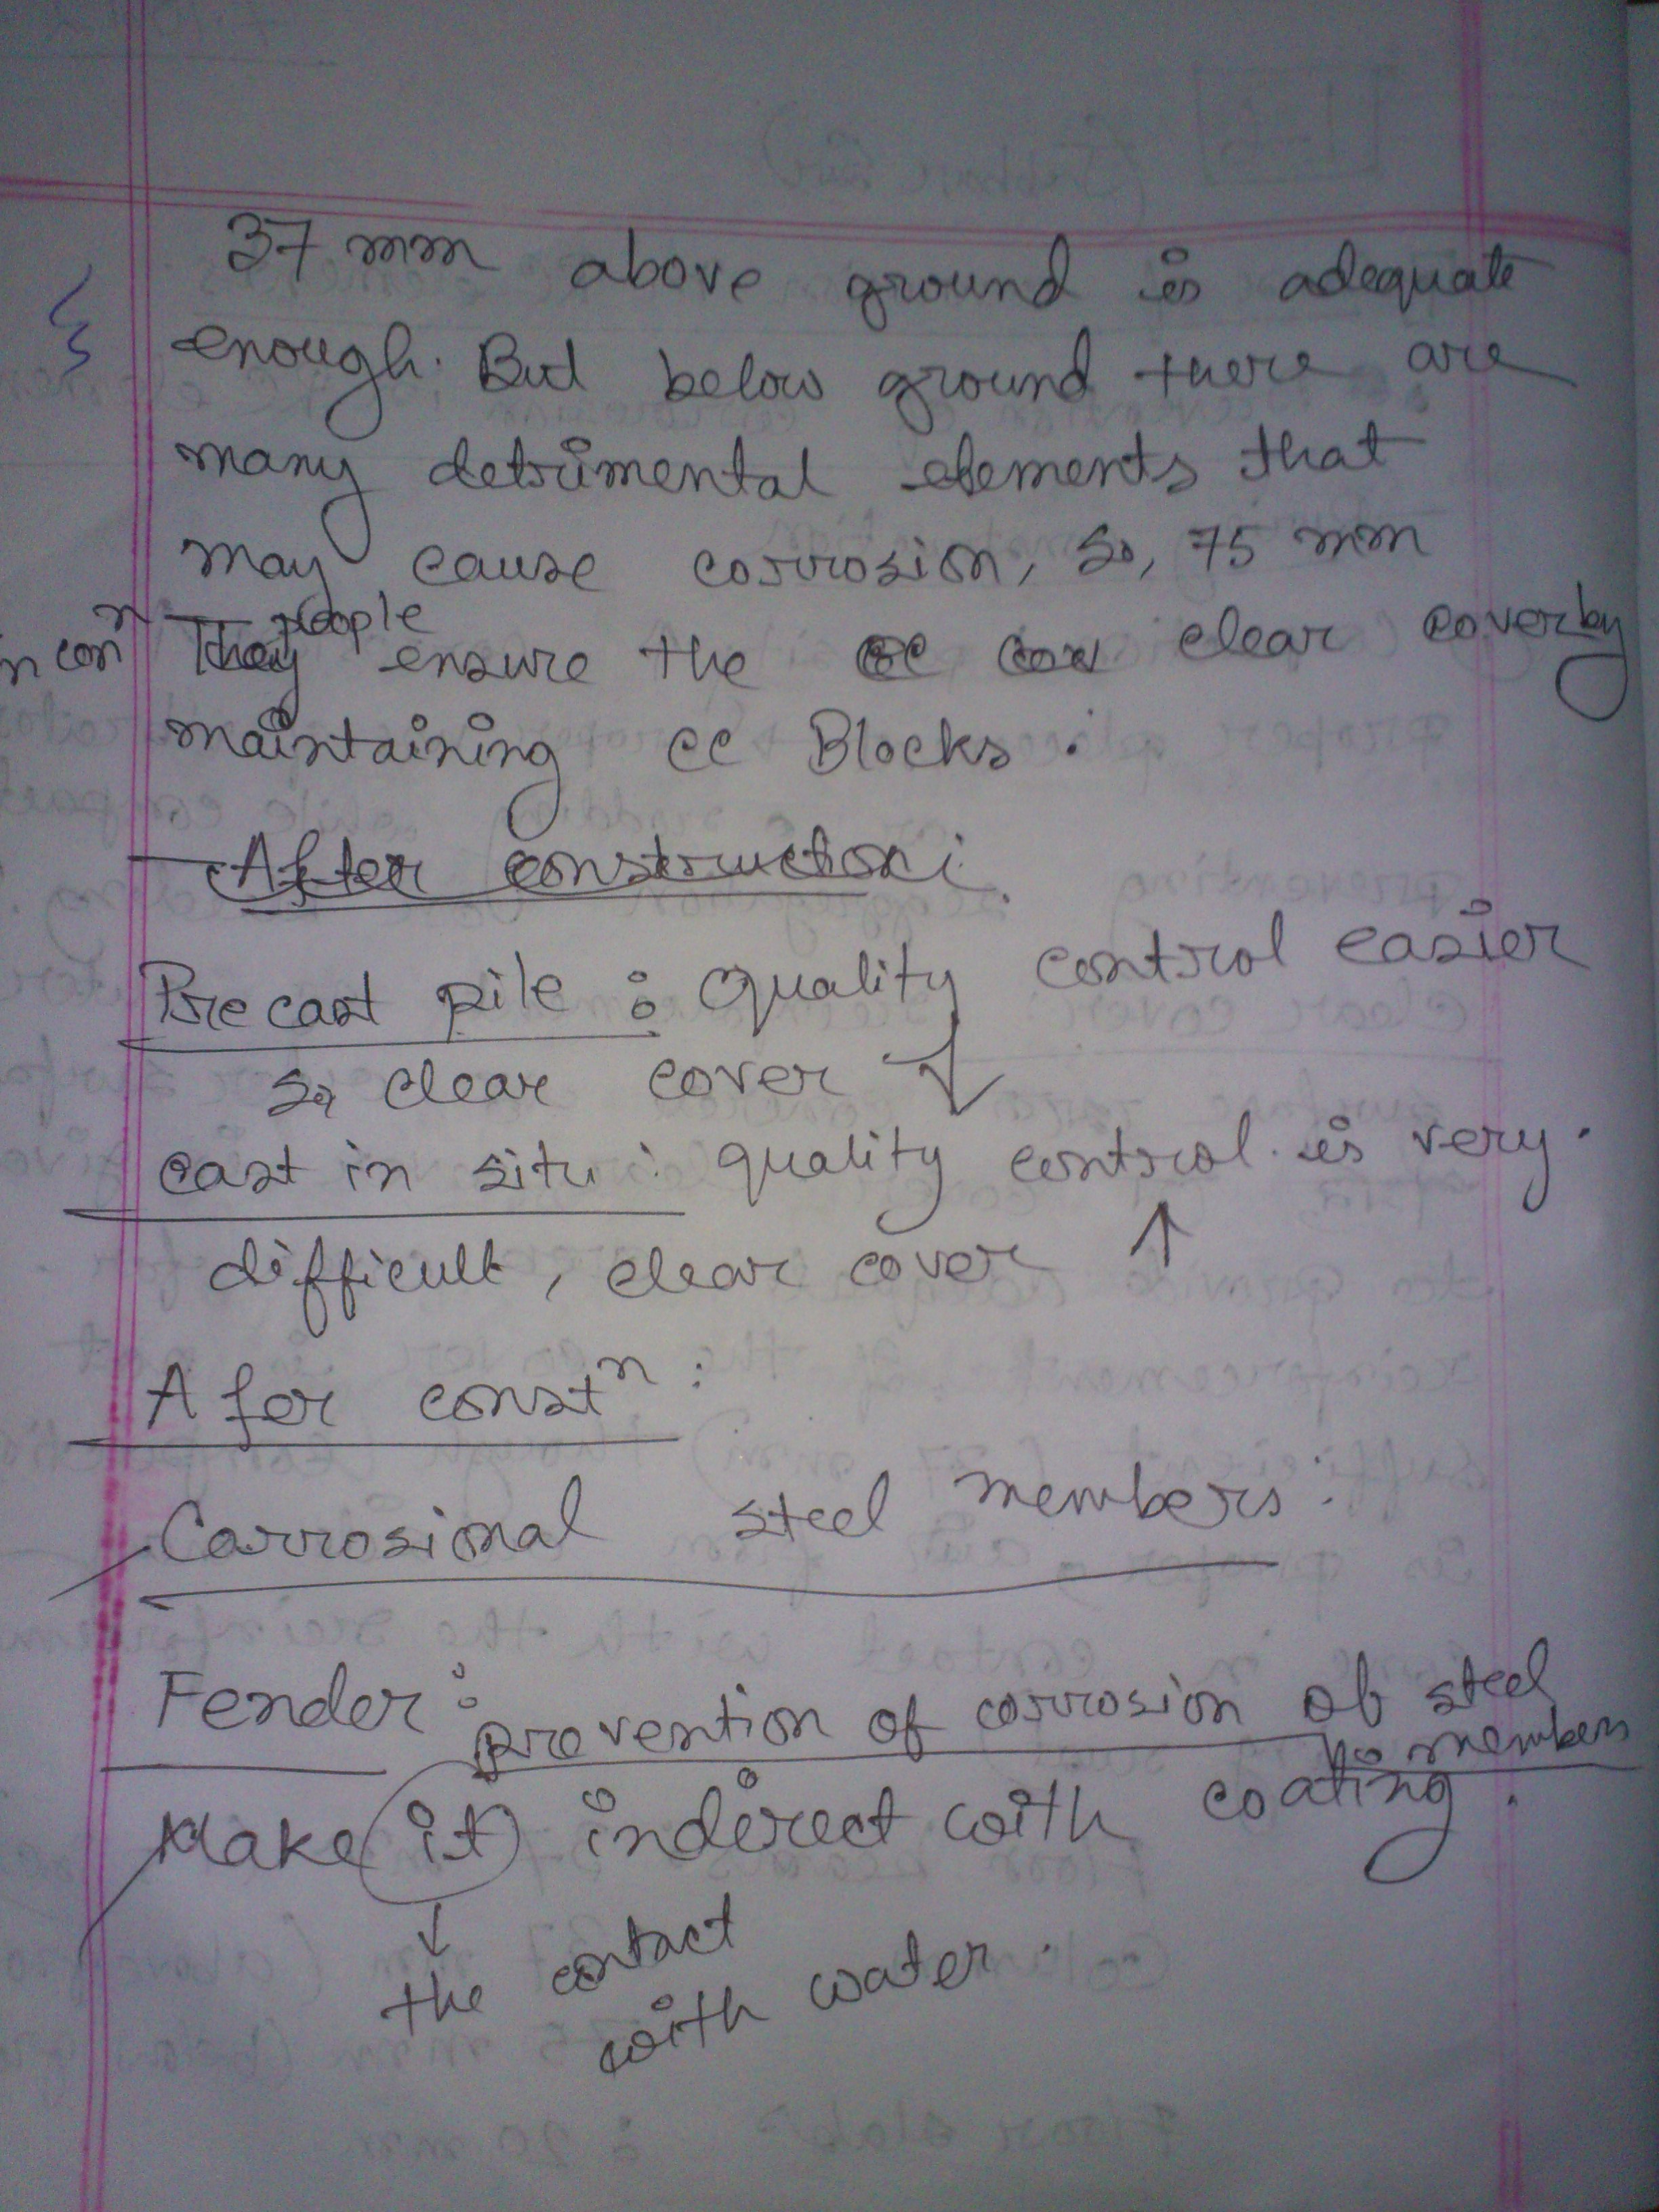 37 mm above ground is adequate
enough. But below ground there are
many detrimental elements that
may cause corrosion, so, 75 mm
people
They ensure the clear cover by
maintaining CC Blocks.
After construction:
Precast pile : quality control easier
so, clear cover ↓
cast in situ : quality control is very
difficult, clear cover ↑
A for constⁿ :
Carrosional steel members:
Fender : prevention of corrosion of steel
members
Make it indirect with coating.
↓
the contact
with water.